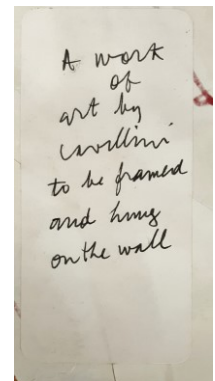 A work
of
art by
Cavellini
to be framed
and hung
on the wall